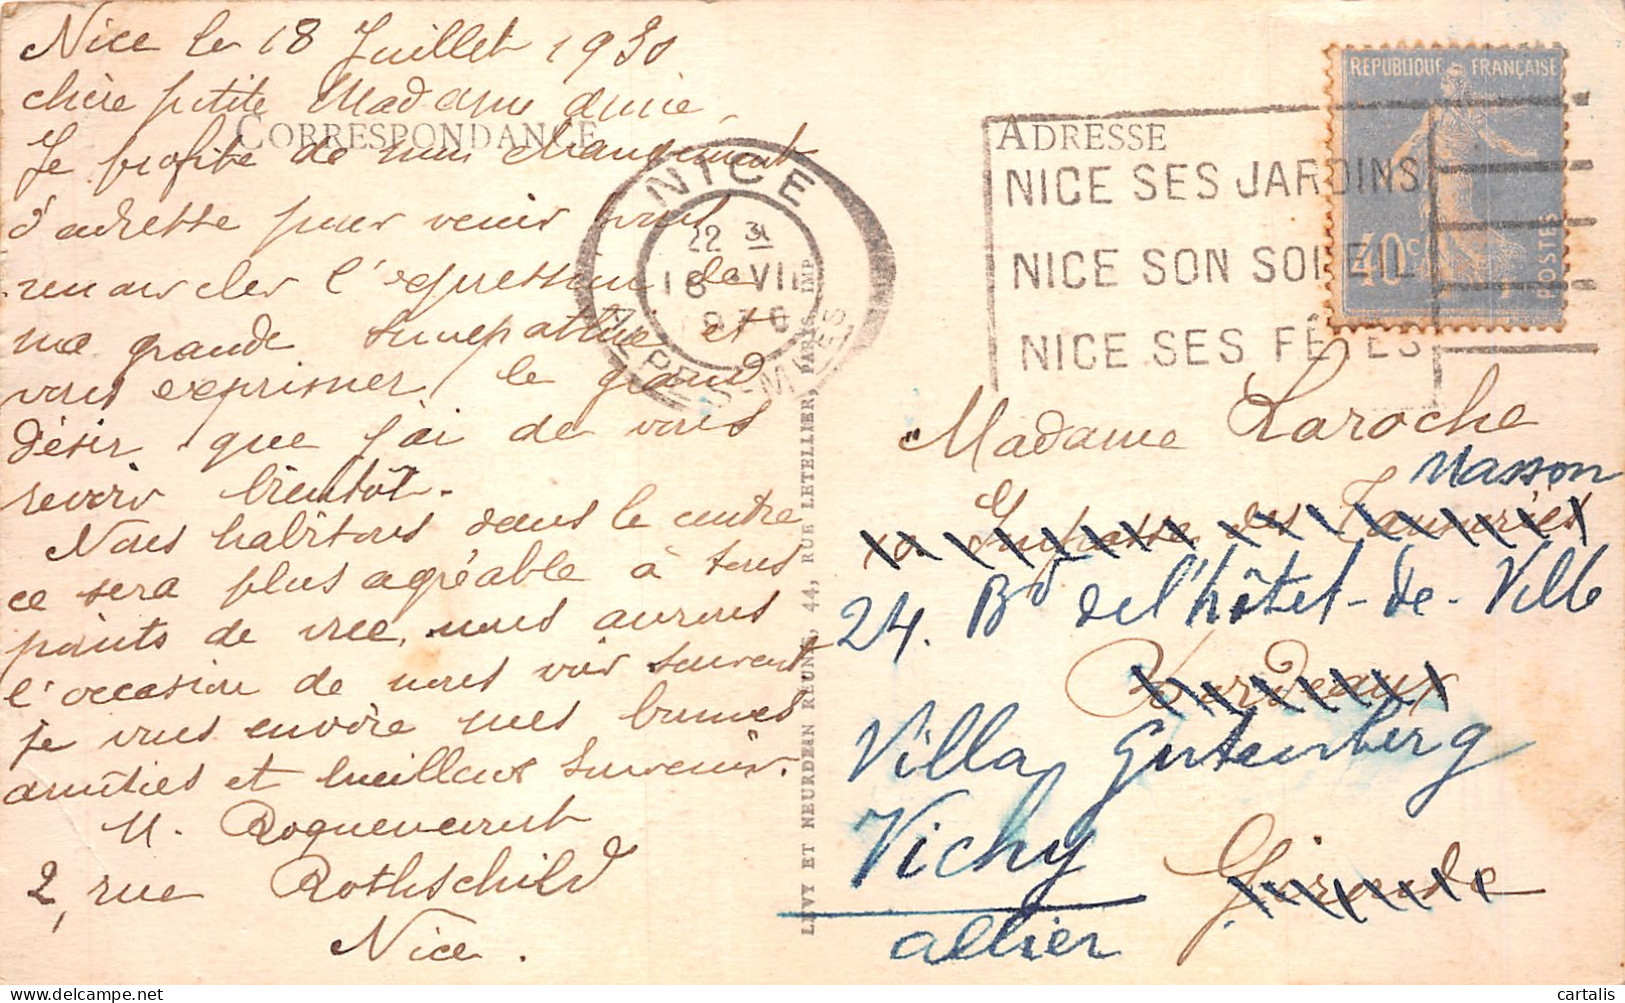 Nice le 18 Juillet 1930
chère petite Madame amie,
CORRESPONDANCE
Je profite de mon changement
d'adresse pour venir vous
renouveler l'expression de
ma grande sympathie et
vous exprimer le grand
désir que j'ai de vous
revoir bientôt.
Nous habitons dans le centre
ce sera plus agréable à tous
points de vue, nous aurons
l'occasion de nous voir souvent
je vous envoie mes bonnes
amitiés et meilleur souvenir.
M.
2, rue Rothschild
Nice.
NICE
22
18 VII
ALPES-MMES
LEVY ET NEURDEIN REUNIS, 44, RUE LETELLIER, PARIS IMP.
ADRESSE
NICE SES JARDINS
NICE SON SOLEIL
NICE SES FÊTES
REPUBLIQUE FRANÇAISE
40c
POSTES
Madame Laroche
Masson
Impasse des Tanneries
24. Bd de l'hôtel-de-Ville
Bordeaux
Villa Gutenberg
Vichy
Gironde
allier
cartalis